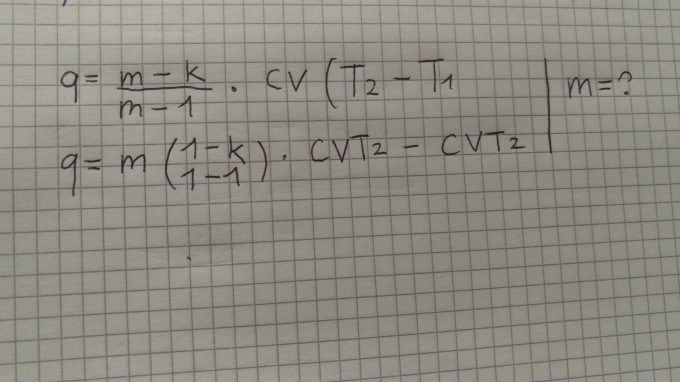 q = m - k / m - 1 · CV (T2 - T1 | m = ?
q = m (1 - k / 1 - 1) · CVT2 - CVT2